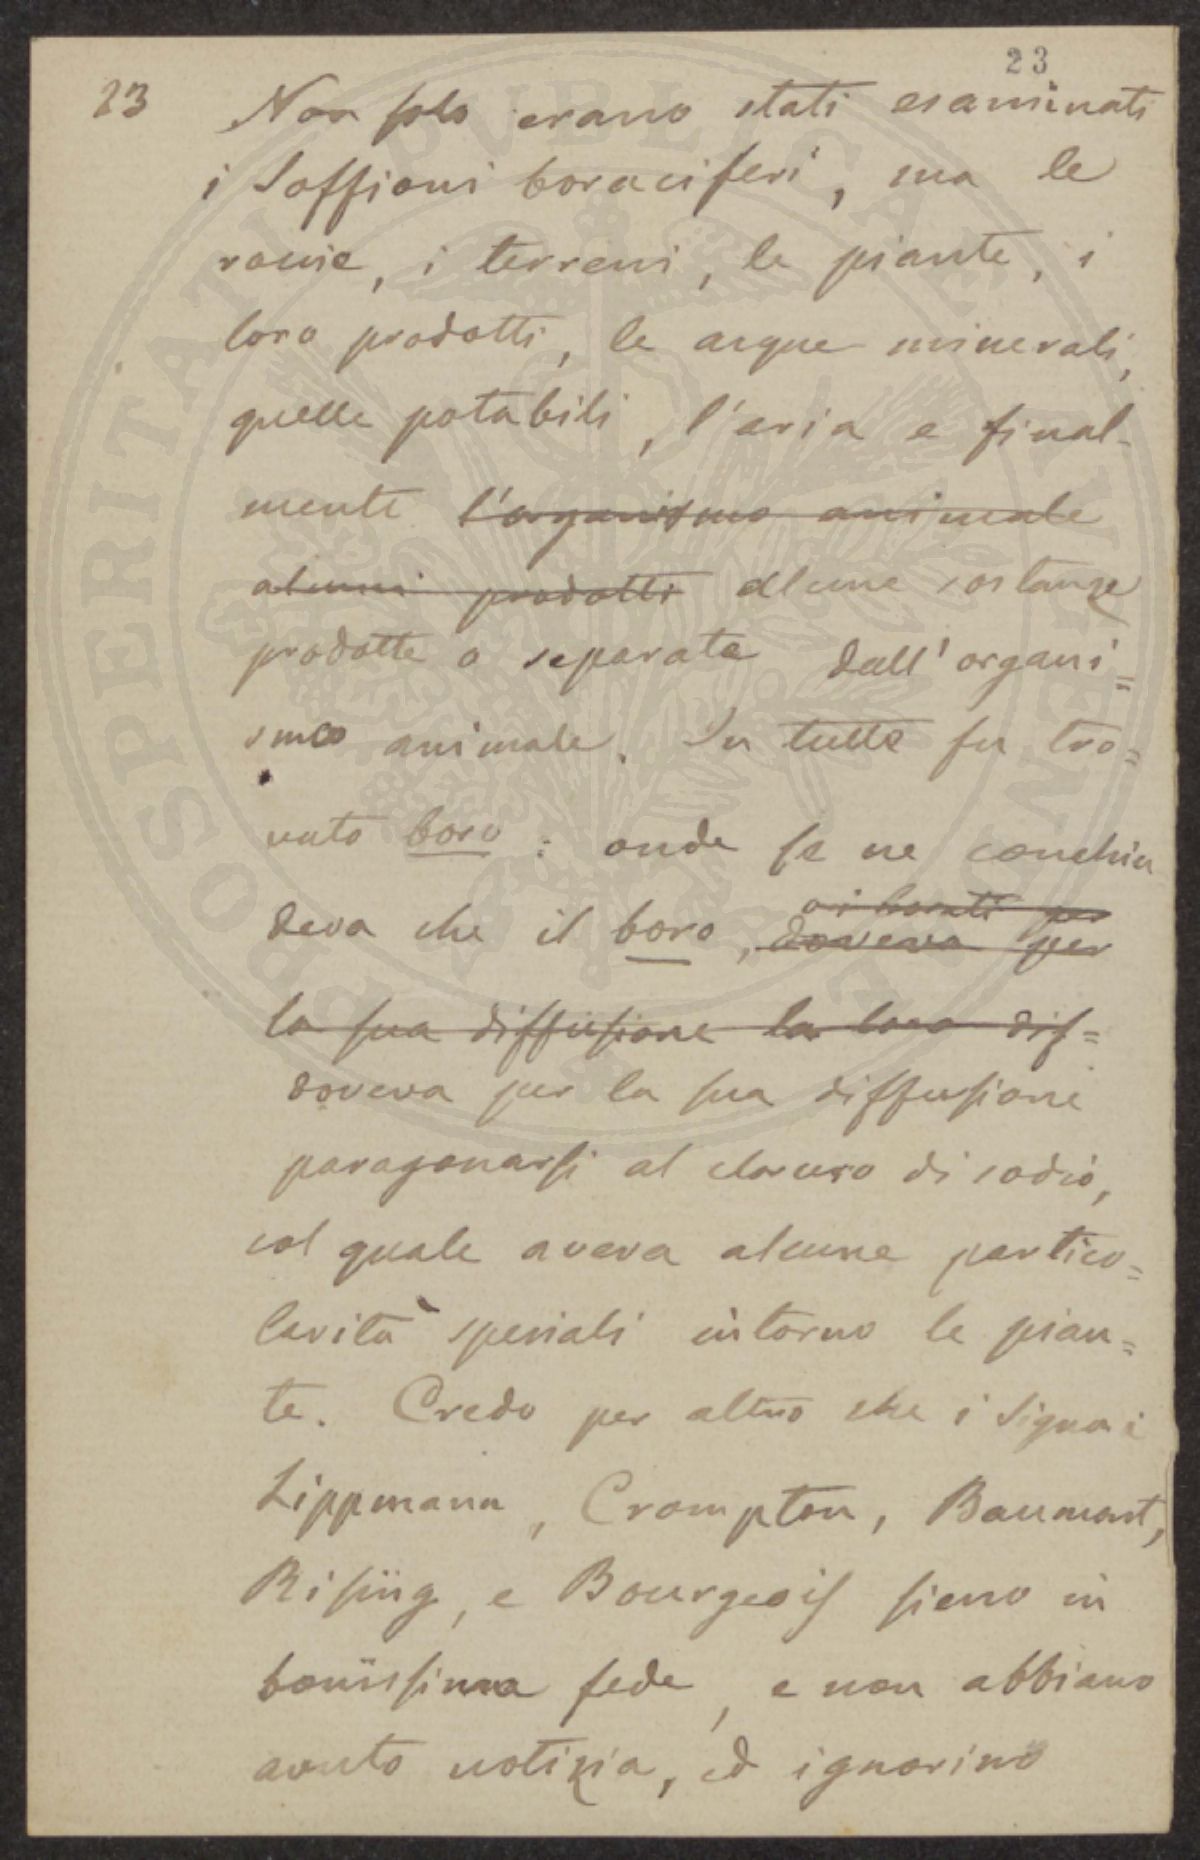 23
23 Non solo erano stati esaminati
i Soffioni boraciferi, ma le
rocce, i terreni, le piante, i
loro prodotti, le acque minerali,
quelle potabili, l'aria e final-
mente l'organismo animale
alcuni prodotti alcune sostanze
prodotte o separate dall'organi=
smo animale. In tutte fu tro=
vato boro: onde se ne conchiu
o i borati per
deva che il boro, doveva per
la sua diffusione la loro dif=
doveva per la sua diffusione
paragonarsi al cloruro di sodio,
col quale aveva alcune partico=
larità speciali intorno le pian=
te. Credo per altro che i Signori
Lippmann, Crampton, Baumert,
Rising, e Bourgeois sieno in
bonissima fede, e non abbiano
avuto notizia, ed ignorino
PROSPERITATI PVBLICAE